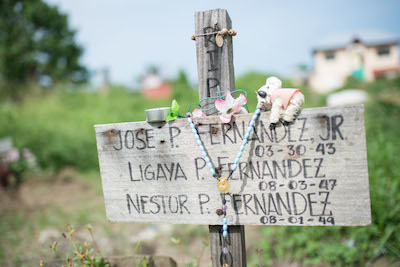 R
I
P
JOSE P. FERNANDEZ JR.
03-30-43
LIGAYA P. FERNANDEZ
08-03-47
NESTOR P. FERNANDEZ
08-01-49